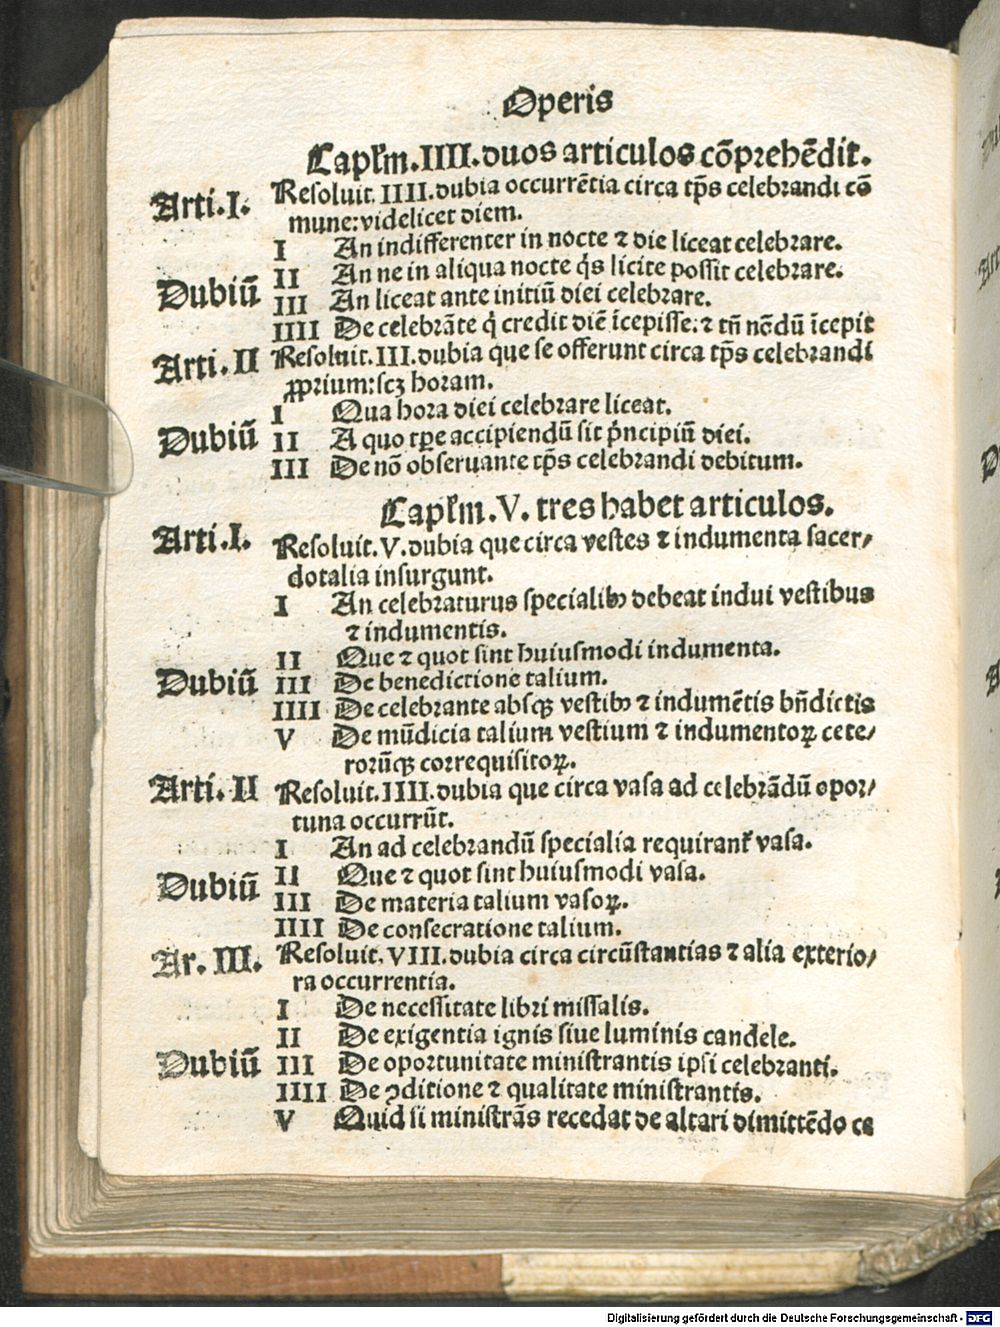 Operis
Capl̃m.IIII.duos articulos cõprehẽdit.
Arti.I. Resoluit.IIII.dubia occurrẽtia circa tp̃s celebrandi cõ
mune:videlicet diem.
I An indifferenter in nocte ⁊ die liceat celebrare.
II An ne in aliqua nocte q̇s licite possit celebrare.
Dubiũ III An liceat ante initiũ diei celebrare.
IIII De celebrãte q̇ credit diẽ ĩcepisse:⁊ tñ nõdũ ĩcepit
Arti.II Resoluit.III.dubia que se offerunt circa tp̃s celebrandi
ꝓprium:scꝫ horam.
I Qua hora diei celebrare liceat.
Dubiũ II A quo tꝑe accipiendũ sit p̓ncipiũ diei.
III De nõ obseruante tp̃s celebrandi debitum.
Capl̃m.V. tres habet articulos.
Arti.I. Resoluit.V.dubia que circa vestes ⁊ indumenta sacer/
dotalia insurgunt.
I An celebraturus specialibꝰ debeat indui vestibus
⁊ indumentis.
II Que ⁊ quot sint huiusmodi indumenta.
Dubiũ III De benedictione talium.
IIII De celebrante absqꝫ vestibꝰ ⁊ indumẽtis bñdictis
V De mũdicia talium vestium ⁊ indumentoꝝ cete/
rorũqꝫ correquisitoꝝ.
Arti.II Resoluit.IIII.dubia que circa vasa ad celebrãdũ opor/
tuna occurrũt.
I An ad celebrandũ specialia requirant᷑ vasa.
Dubiũ II Que ⁊ quot sint huiusmodi vasa.
III De materia talium vasoꝝ.
IIII De consecratione talium.
Ar.III. Resoluit.VIII.dubia circa circũstantias ⁊ alia exterio/
ra occurrentia.
I De necessitate libri missalis.
II De exigentia ignis siue luminis candele.
Dubiũ III De oportunitate ministrantis ipsi celebranti.
IIII De ꝯditione ⁊ qualitate ministrantis.
V Quid si ministrãs recedat de altari dimittẽdo ce
Digitalisierung gefördert durch die Deutsche Forschungsgemeinschaft - DFG